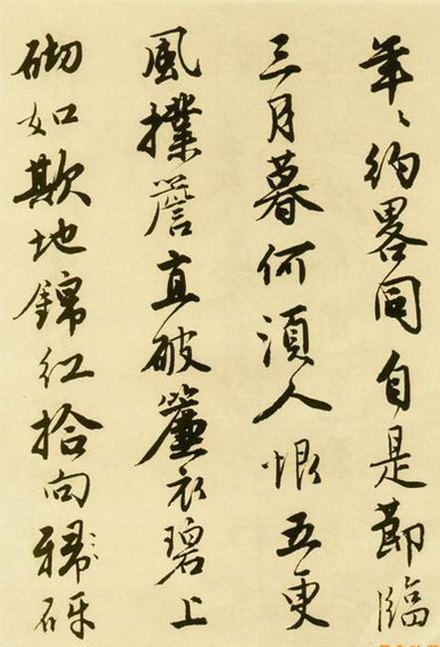 年〻約畧同自是節臨
三月暮何須人恨五更
風撲簷直破簾衣碧上
砌如欺地錦紅拾向砑